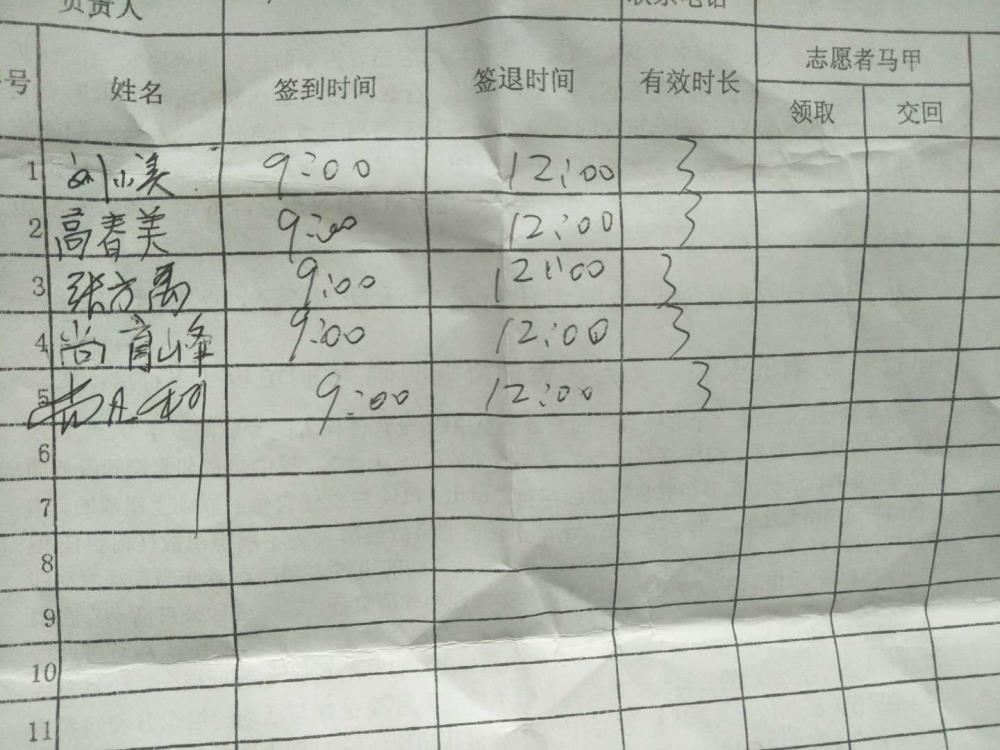 负责人 联系电话
号 姓名 签到时间 签退时间 有效时长 志愿者马甲
领取 交回
1 刘小美 9:00 12:00 3
2 高春美 9:00 12:00 3
3 张方禹 9:00 12:00 3
4 尚育峰 9:00 12:00 3
5 9:00 12:00 3
6
7
8
9
10
11